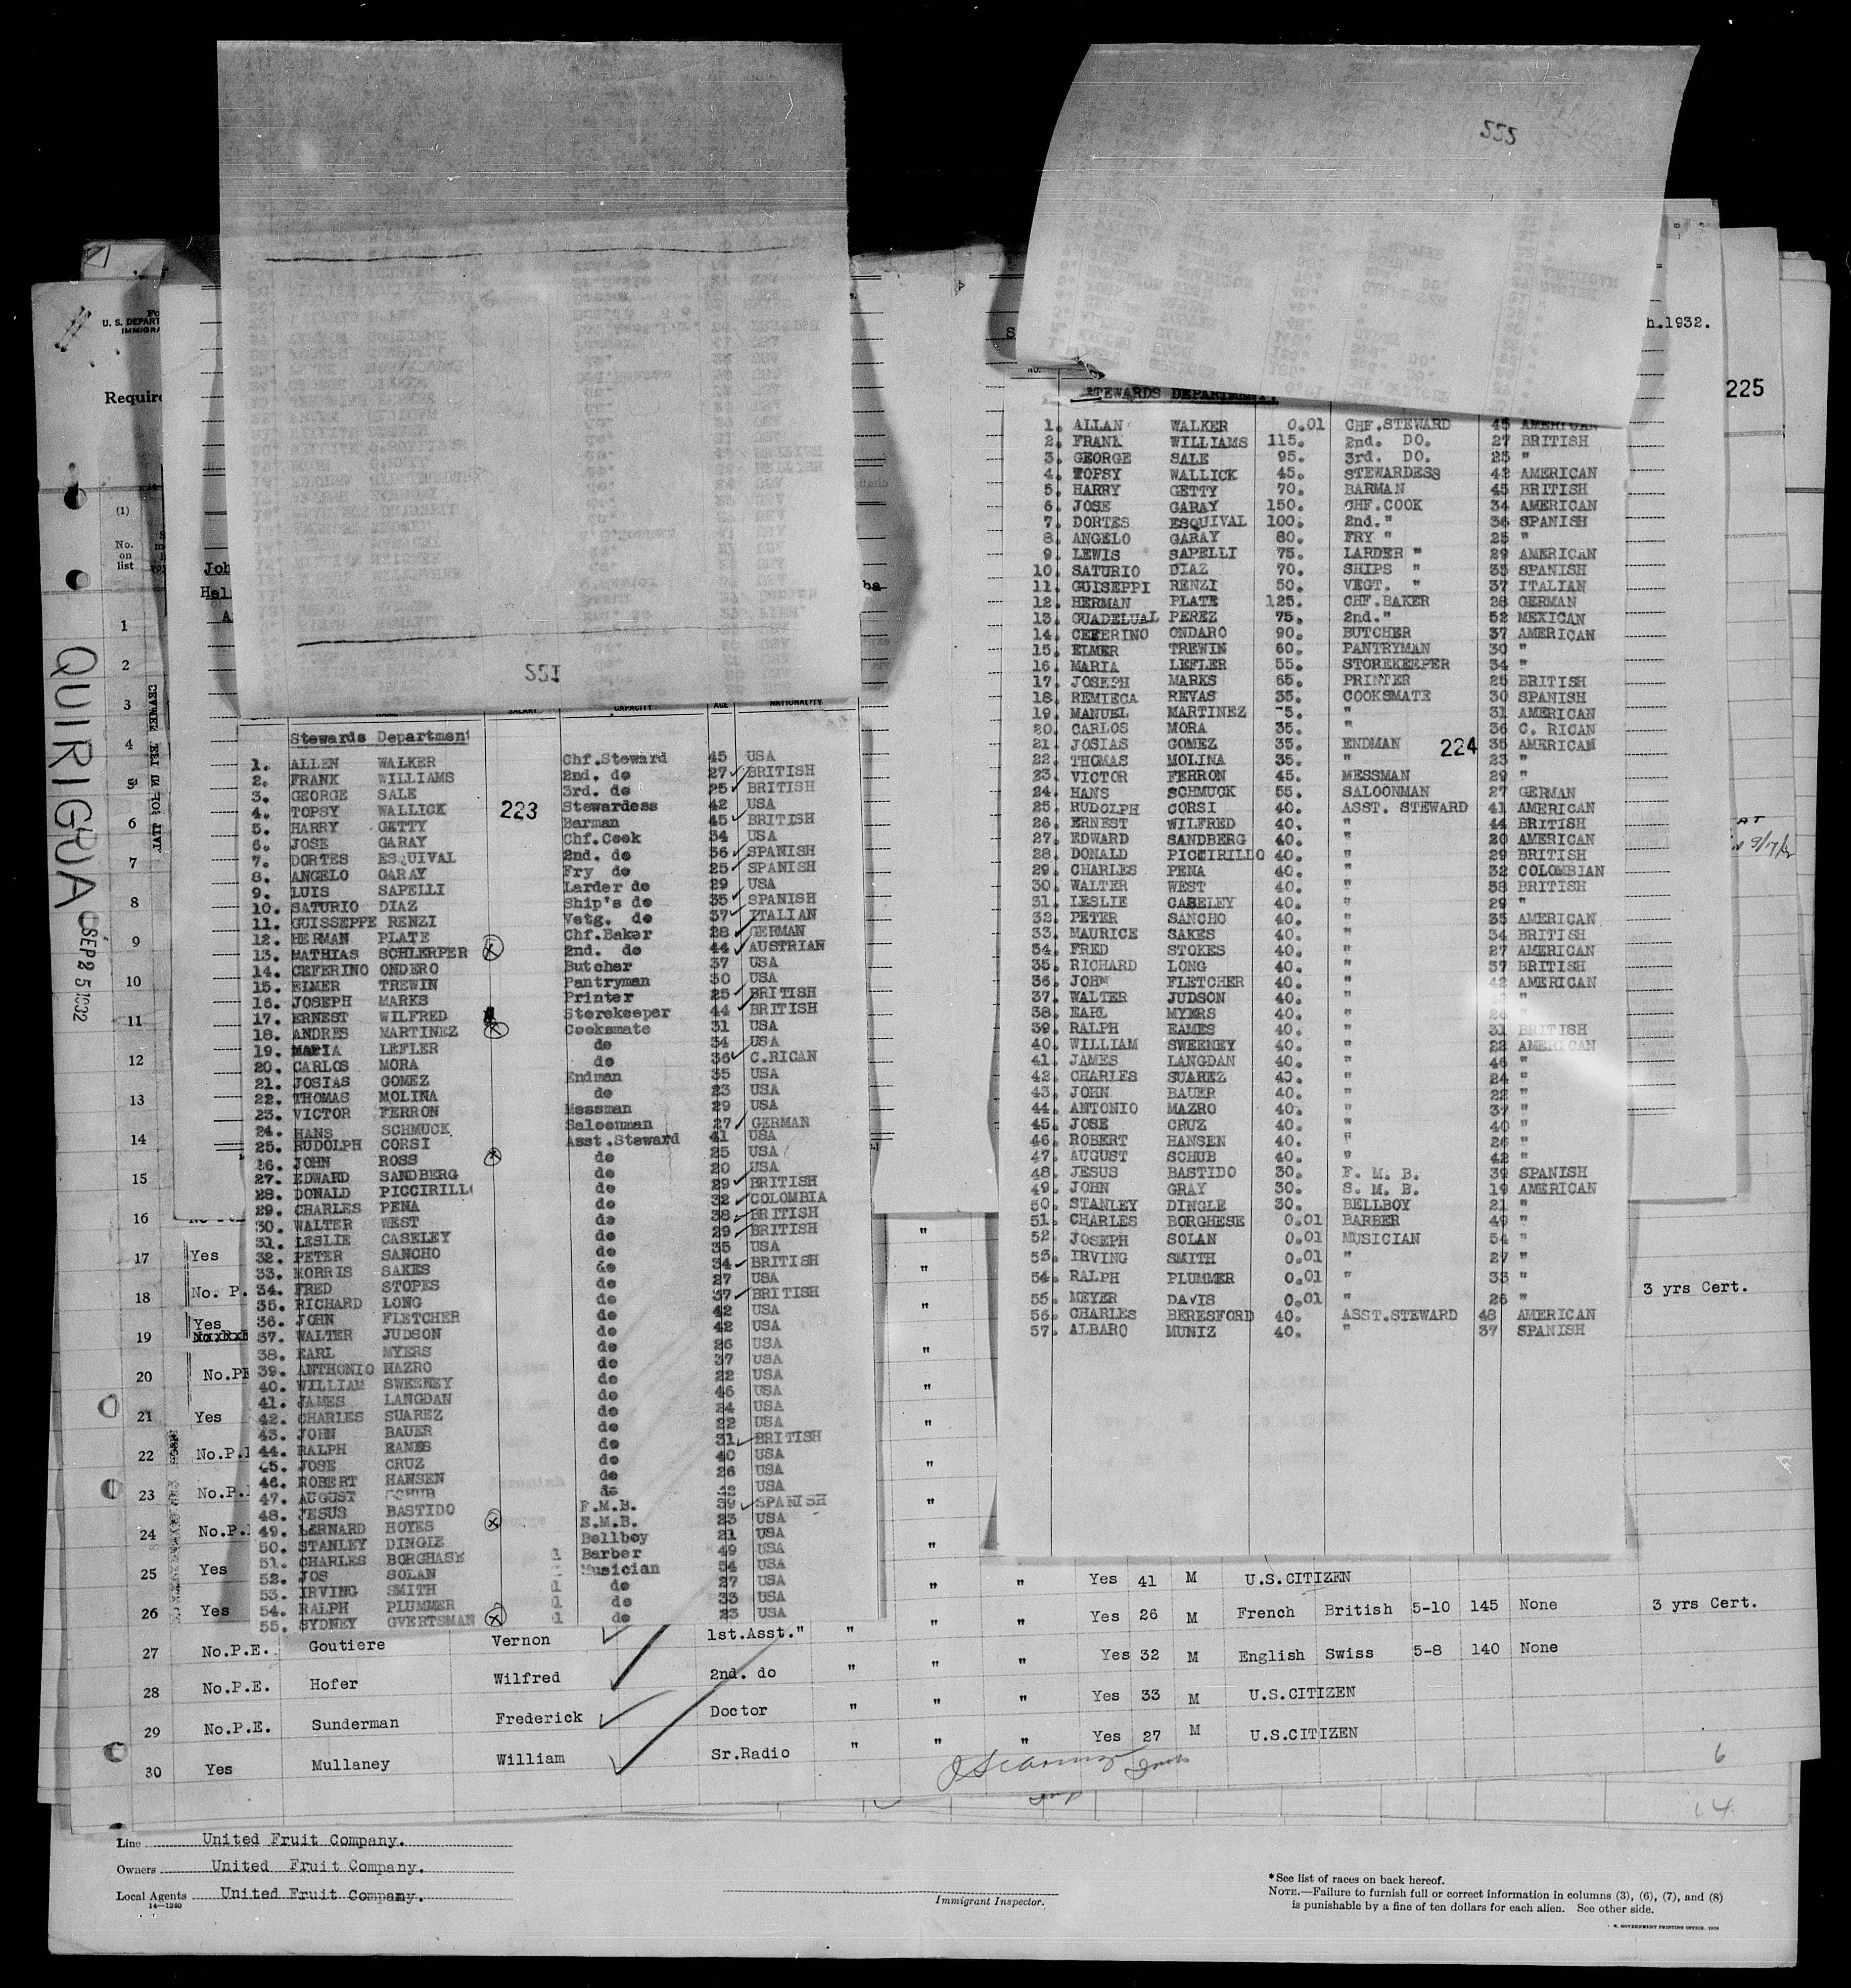 223
SALARY CAPACITY AGE NATIONALITY
Stewards Department
1. ALLEN WALKER Chf.Steward 45 USA
2. FRANK WILLIAMS 2nd. do 27 BRITISH
3. GEORGE SALE 3rd. do 25 BRITISH
4. TOPSY WALLICK Stewardess 42 USA
5. HARRY GETTY Barman 45 BRITISH
6. JOSE GARAY Chf.Cook 34 USA
7. DORTES ESQUIVAL 2nd. do 36 SPANISH
8. ANGELO GARAY Fry do 25 SPANISH
9. LUIS SAPELLI Larder do 29 USA
10. SATURIO DIAZ Ship's do 35 SPANISH
11. GUISSEPPE RENZI Vetg. do 37 ITALIAN
12. HERMAN PLATE Chf.Baker 28 GERMAN
13. MATHIAS SCHLERPER 2nd. do 44 AUSTRIAN
14. CEFERINO ONDERO Butcher 37 USA
15. ELMER TREWIN Pantryman 30 USA
16. JOSEPH MARKS Printer 25 BRITISH
17. ERNEST WILFRED Storekeeper 44 BRITISH
18. ANDRES MARTINEZ Cooksmate 31 USA
19. MARIA LEFLER do 34 USA
20. CARLOS MORA do 36 C.RICAN
21. JOSIAS GOMEZ Endman 35 USA
22. THOMAS MOLINA do 23 USA
23. VICTOR FERRON Messman 29 USA
24. HANS SCHMUCK Saloonman 27 GERMAN
25. RUDOLPH CORSI Asst.Steward 41 USA
26. JOHN ROSS do 25 USA
27. EDWARD SANDBERG do 20 USA
28. DONALD PICCIRILLO do 29 BRITISH
29. CHARLES PENA do 32 COLOMBIA
30. WALTER WEST do 38 BRITISH
31. LESLIE CASELEY do 29 BRITISH
32. PETER SANCHO do 35 USA
33. MORRIS SAKES do 34 BRITISH
34. FRED STOPES do 27 USA
35. RICHARD LONG do 37 BRITISH
36. JOHN FLETCHER do 42 USA
37. WALTER JUDSON do 42 USA
38. EARL MYERS do 26 USA
39. ANTHONIO MAZRO do 37 USA
40. WILLIAM SWEENEY do 22 USA
41. JAMES LANGDAN do 46 USA
42. CHARLES SUAREZ do 24 USA
43. JOHN BAUER do 22 USA
44. RALPH EAMES do 31 BRITISH
45. JOSE CRUZ do 40 USA
46. ROBERT HANSEN do 26 USA
47. AUGUST SCHUB do 42 USA
48. JESUS BASTIDO F.M.B. 39 SPANISH
49. LERNARD HOYES S.M.B. 23 USA
50. STANLEY DINGLE Bellboy 21 USA
51. CHARLES BORGHASE 1 Barber 49 USA
52. JOS SOLAN Musician 54 USA
53. IRVING SMITH 1 do 27 USA
54. RALPH PLUMMER 1 do 33 USA
55. SYDNEY GVERTSMAN 1 do 23 USA
221
222
h.1932.
225
224
NO.
STEWARDS DEPARTMENT
1. ALLAN WALKER 0.01 CHF.STEWARD 45 AMERICAN
2. FRANK WILLIAMS 115. 2nd. DO. 27 BRITISH
3. GEORGE SALE 95. 3rd. DO. 25 "
4. TOPSY WALLICK 45. STEWARDESS 42 AMERICAN
5. HARRY GETTY 70. BARMAN 45 BRITISH
6. JOSE GARAY 150. CHF.COOK 34 AMERICAN
7. DORTES ESQUIVAL 100. 2nd." 36 SPANISH
8. ANGELO GARAY 80. FRY " 25 "
9. LEWIS SAPELLI 75. LARDER " 29 AMERICAN
10. SATURIO DIAZ 70. SHIPS " 35 SPANISH
11. GUISEPPI RENZI 50. VEGT. " 37 ITALIAN
12. HERMAN PLATE 125. CHF.BAKER 28 GERMAN
13. GUADELUAL PEREZ 75. 2nd." 52 MEXICAN
14. CEFERINO ONDARO 90. BUTCHER 37 AMERICAN
15. ELMER TREWIN 60. PANTRYMAN 30 "
16. MARIA LEFLER 55. STOREKEEPER 34 "
17. JOSEPH MARKS 65. PRINTER 25 BRITISH
18. REMIECA REVAS 35. COOKSMATE 30 SPANISH
19. MANUEL MARTINEZ 5. " 31 AMERICAN
20. CARLOS MORA 35. " 36 C. RICAN
21. JOSIAS GOMEZ 35. ENDMAN 35 AMERICAN
22. THOMAS MOLINA 35. " 23 "
23. VICTOR FERRON 45. MESSMAN 29 "
24. HANS SCHMUCK 55. SALOONMAN 27 GERMAN
25. RUDOLPH CORSI 40. ASST. STEWARD 41 AMERICAN
26. ERNEST WILFRED 40. " 44 BRITISH
27. EDWARD SANDBERG 40. " 20 AMERICAN
28. DONALD PICCIRILLO 40. " 29 BRITISH
29. CHARLES PENA 40. " 32 COLOMBIAN
30. WALTER WEST 40. " 38 BRITISH
31. LESLIE CASELEY 40. " 29 "
32. PETER SANCHO 40. " 35 AMERICAN
33. MAURICE SAKES 40. " 34 BRITISH
34. FRED STOKES 40. " 27 AMERICAN
35. RICHARD LONG 40. " 37 BRITISH
36. JOHN FLETCHER 40. " 42 AMERICAN
37. WALTER JUDSON 40. " "
38. EARL MYERS 40. " 26 "
39. RALPH EAMES 40. " 31 BRITISH
40. WILLIAM SWEENEY 40. " 22 AMERICAN
41. JAMES LANGDAN 40. " 46 "
42. CHARLES SUAREZ 40. " 24 "
43. JOHN BAUER 40. " 22 "
44. ANTONIO MAZRO 40. " 37 "
45. JOSE CRUZ 40. " 40 "
46. ROBERT HANSEN 40. " 26 "
47. AUGUST SCHUB 40. " 42 "
48. JESUS BASTIDO 30. F. M. B. 39 SPANISH
49. JOHN GRAY 30. S. M. B. 19 AMERICAN
50. STANLEY DINGLE 30. BELLBOY 21 "
51. CHARLES BORGHESE 0.01 BARBER 49 "
52. JOSEPH SOLAN 0.01 MUSICIAN 54 "
53. IRVING SMITH 0.01 " 27 "
54. RALPH PLUMMER 0.01 " 33 "
55. MEYER DAVIS 0.01 " 26 "
56. CHARLES BERESFORD 40. ASST.STEWARD 48 AMERICAN
57. ALBARO MUNIZ 40. " 37 SPANISH
QUIRIGUA
SEP 25 1932
U. S. DEPART
IMMIGRA
Require
(1)
No.
on
list
Joh
Hel
ba
1
2
3
4
5
6
7
8
9
10
11
12
13
14
15
16
17 Yes
18 No. P. 3 yrs Cert.
19 Yes
20 No.PE
21 Yes
22 No.P.
23 No.P.
24 No.P.
25 Yes " " Yes 41 M U.S.CITIZEN
26 Yes " " Yes 26 M French British 5-10 145 None 3 yrs Cert.
27 No.P.E. Goutiere Vernon 1st.Asst." " " " Yes 32 M English Swiss 5-8 140 None
28 No.P.E. Hofer Wilfred 2nd. do " " " Yes 33 M U.S.CITIZEN
29 No.P.E. Sunderman Frederick Doctor " " " Yes 27 M U.S.CITIZEN
30 Yes Mullaney William Sr.Radio " " "
6
14
Line United Fruit Company.
Owners United Fruit Company.
Local Agents United Fruit Company.
14—1240
Immigrant Inspector.
*See list of races on back hereof.
NOTE.—Failure to furnish full or correct information in columns (3), (6), (7), and (8)
is punishable by a fine of ten dollars for each alien. See other side.